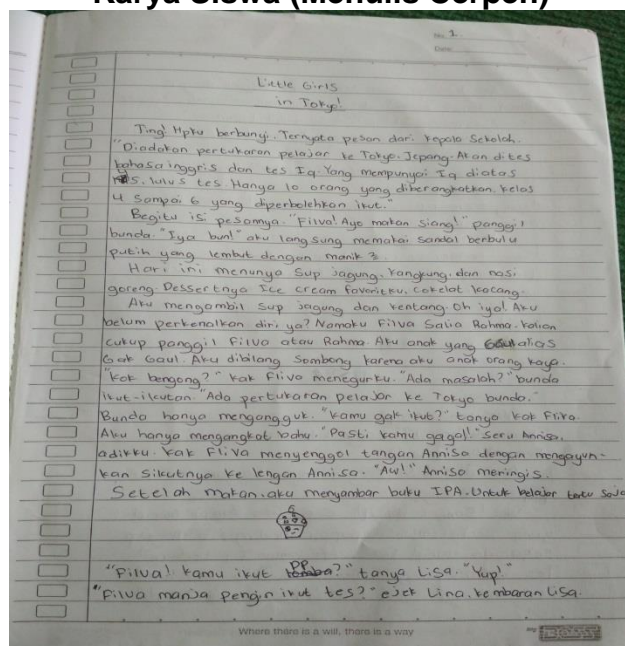 Karya Siswa (Menulis Cerpen)
No. 1
Date
Little Girls
in Tokyo!
Ting! Hpku berbunyi. Ternyata pesan dari kepala Sekolah.
"Diadakan pertukaran pelajar ke Tokyo. Jepang. Akan dites
bahasa inggris dan tes Iq. Yang mempunyai Iq diatas
lulus tes. Hanya 10 orang yang diberangkatkan. kelas
4 Sampai 6 yang diperbolehkan ikut."
Begitu isi pesannya. "Filva! Ayo makan siang!" panggil
bunda. "Iya bun!" aku langsung memakai sandal berbulu
putih yang lembut dengan manik 2
Hari ini menunya Sup Jagung, kangkung, dan nasi
goreng. Dessertnya Ice cream favoritku. Cokelat kacang.
Aku mengambil sup jagung dan kentang. Oh iya! Aku
belum perkenalkan diri ya? Namaku Filva Salia Rahma. Kalian
cukup panggil Filva atau Rahma. Aku anak yang alias
Gak Gaul. Aku dibilang Sombong karena aku anak orang kaya.
"kok bengong?" kak Fliva menegurku. "Ada masalah?" bunda
ikut-ikutan. "Ada pertukaran pelajar ke Tokyo bunda."
Bunda hanya mengangguk. "Kamu gak ikut?" tanya kak Fliva.
Aku hanya mengangkat bahu. "Pasti kamu gagal!" Seru Annisa,
adikku. Kak Fliva menyenggol tangan Annisa dengan mengayun-
kan Sikutnya ke lengan Annisa. "Aw!" Annisa meringis.
Setelah makan, aku menyambar buku IPA. Untuk belajar tentu saja
"Filva! kamu ikut PP?" tanya Lisa. "Yup!"
"Filva manja pengin ikut tes?" ejek Lina, kembaran Lisa.
Where there is a will, there is a way
BOSS